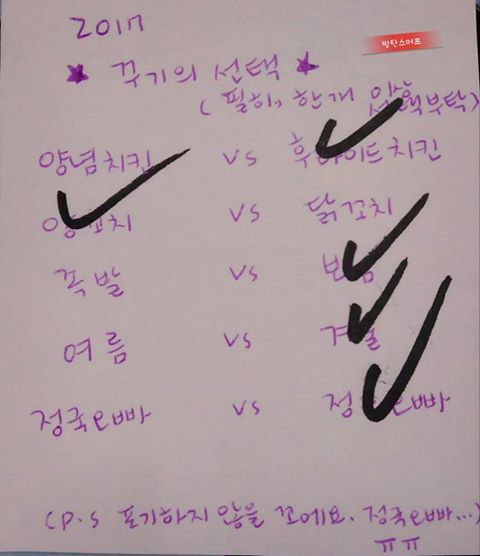 2017
방탄스머프
★ 꾸기의 선택 ★
(필히, 한개 선택부탁)
양념치킨 vs 후라이드치킨
양꼬치 vs 닭꼬치
족발 vs 보쌈
여름 vs 겨울
정국오빠 vs 정국오빠
(P.S 포기하지 않을 꼬에요. 정국오빠...)
ㅠㅠ